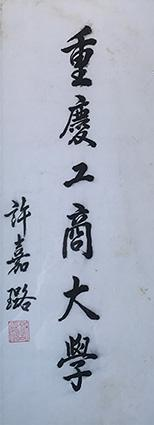 重慶工商大學
許嘉璐